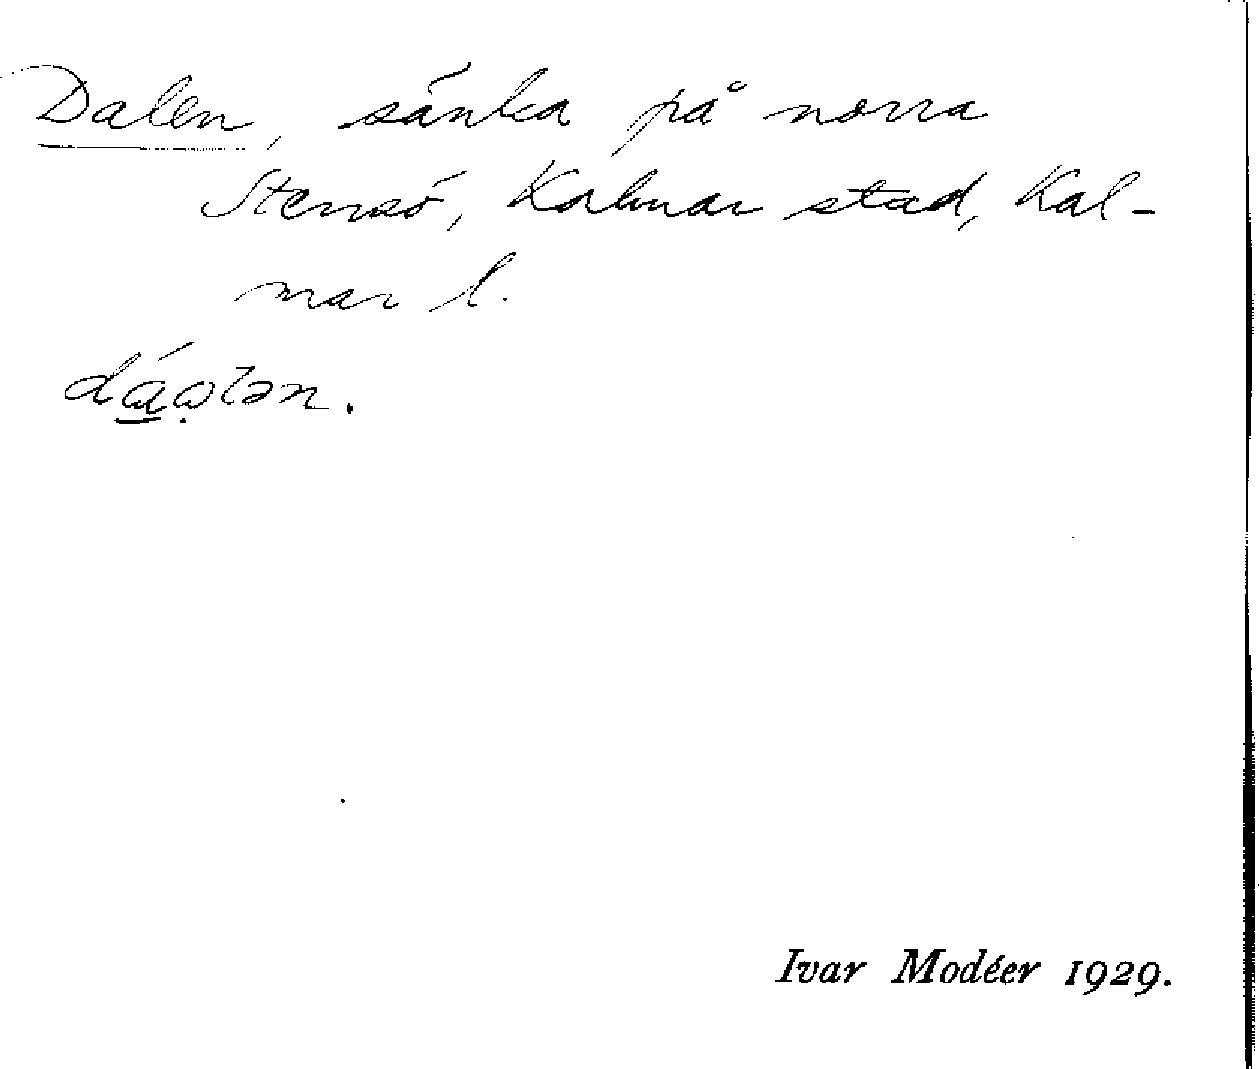 Dalen, sänka på norra
Stensö, Kalmar stad, Kal-
mar l.
dáω̣lən.
Ivar Modéer 1929.